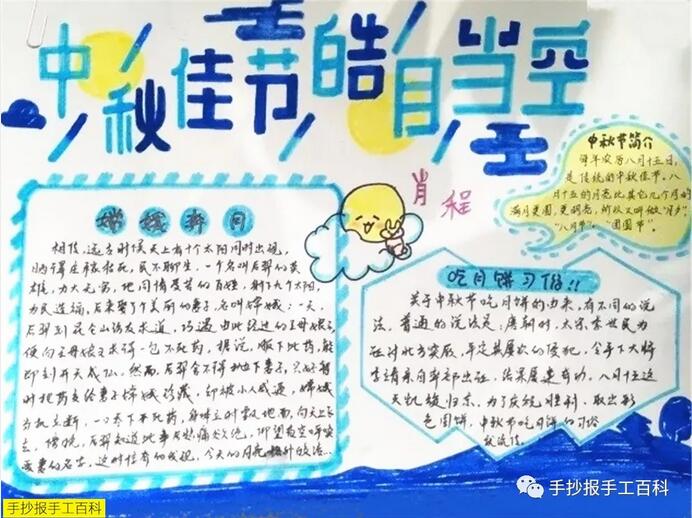 中秋佳节皓月当空
中秋节简介
每年农历八月十五日,
是传统的中秋佳节。八
月十五的月亮比其它几个月的
满月更圆,更明亮,所以又叫做“月夕”
“八月节”“团圆节”。
肖程
嫦娥奔月
相传,远古时候天上有十个太阳同时出现,
晒得庄稼枯死,民不聊生,一个名叫后羿的英
雄,力大无穷,他同情受苦的百姓,射下九个太阳,
为民造福,后来娶了个美丽的妻子,名叫嫦娥;一天,
后羿到昆仑山访友求道,巧遇由此经过的王母娘娘
便向王母娘娘求得一包不死药,据说,服下此药,能
即刻升天成仙。然而,后羿舍不得扔下妻子,只好暂
时把药交给妻子嫦娥珍藏,却被小人威逼,嫦娥
为机立断,一口吞下不死药,身体立刻飘离地面,向天上飞
去,傍晚,后羿知道此事后悲痛欲绝,仰望夜空呼唤
爱妻的名字,这时惊奇的发现,今天的月亮格外皎洁…
吃月饼习俗!!
关于中秋节吃月饼的由来,有不同的说
法。普通的说法是:唐朝时,太宗李世民为
征讨北方突厥,平定其屡次的侵犯,令手下大将
李靖亲自率部出征,结果屡建奇功。八月十五这
天凯旋归京。为了庆祝胜利,取出彩
色圆饼,中秋节吃月饼的习俗
就流传。
手抄报手工百科
手抄报手工百科